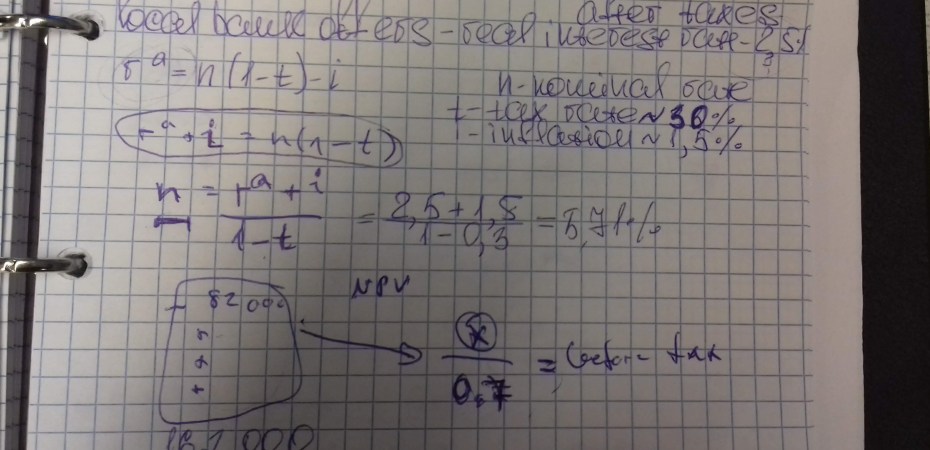 local bank offers - real interest rate - 2,5%
after taxes
r^a = n(1-t)-i
n-nominal rate
t-tax rate ~ 30%
i-inflation ~ 1,5%
r^a + i = n(1-t)
n = r^a + i / 1-t = 2,5+1,5 / 1-0,3 = 5,71%
NPV
- 82 000
+
+
+
x / 0,7 = before tax